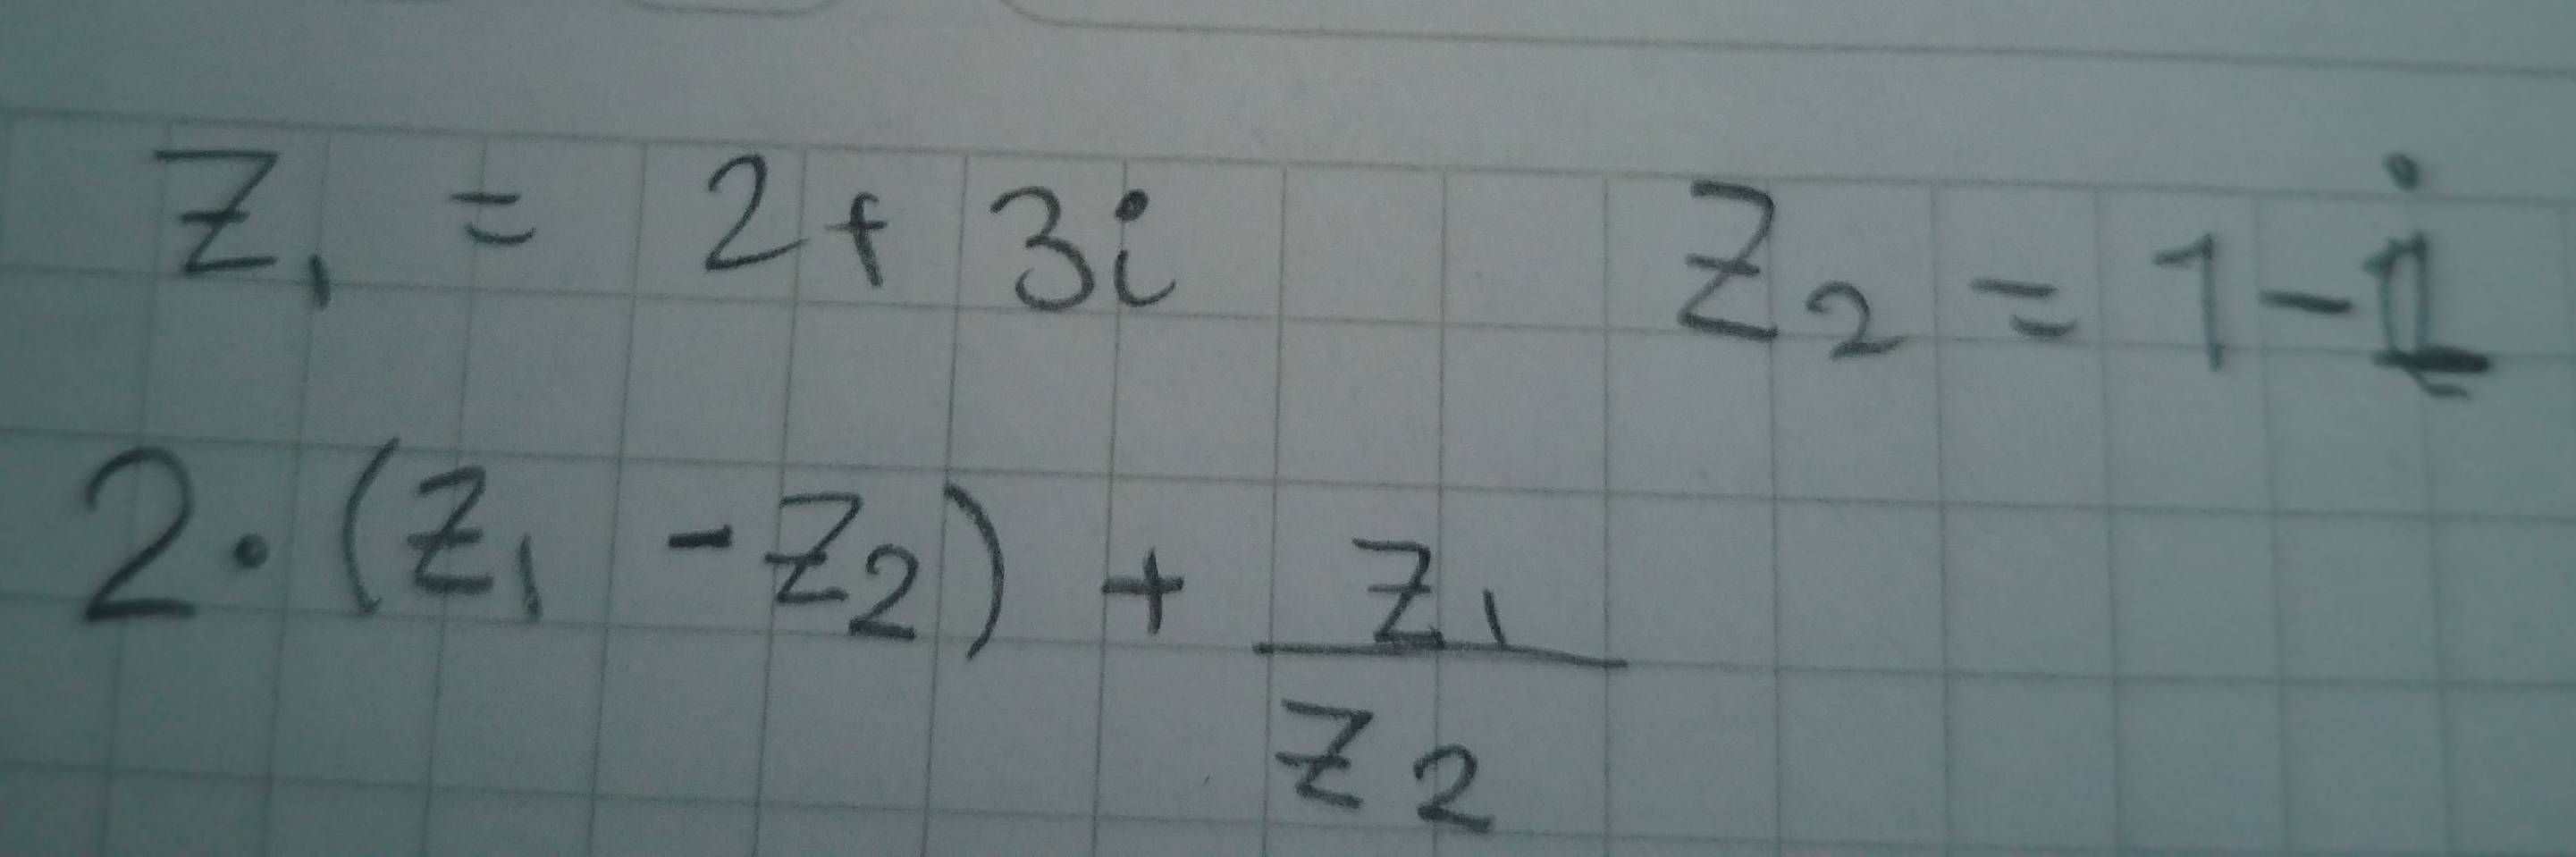 z₁ = 2+3i z₂ = 1-i
2·(z₁ - z₂) + z₁/z₂